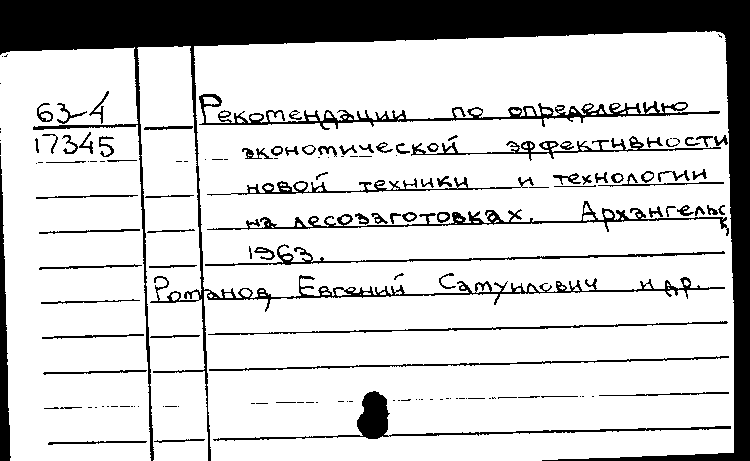 63-4
17345
Рекомендации по определению
экономической эффективности
новой техники и технологии
на лесозаготовках. Архангельск,
1963.
Романов, Евгений Самуилович и др.